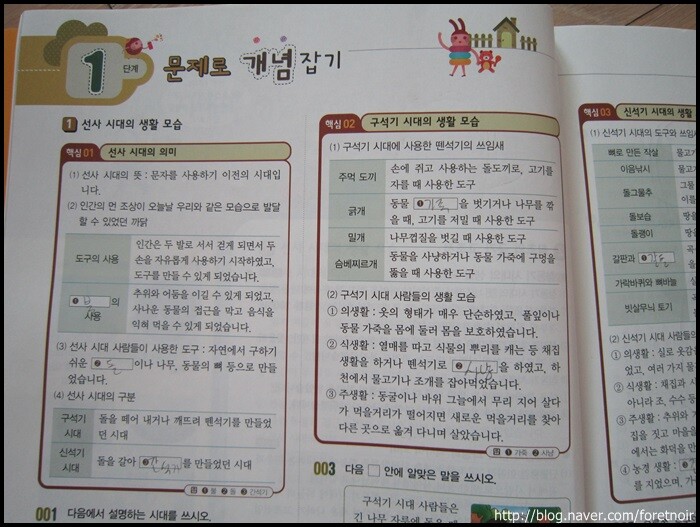 1 단계 문제로 개념 잡기
1 선사 시대의 생활 모습
핵심 01 선사 시대의 의미
(1) 선사 시대의 뜻 : 문자를 사용하기 이전의 시대입
니다.
(2) 인간의 먼 조상이 오늘날 우리와 같은 모습으로 발달
할 수 있었던 까닭
도구의 사용
인간은 두 발로 서서 걷게 되면서 두
손을 자유롭게 사용하기 시작하였고,
도구를 만들 수 있게 되었습니다.
❶ 불 의
사용
추위와 어둠을 이길 수 있게 되었고,
사나운 동물의 접근을 막고 음식을
익혀 먹을 수 있게 되었습니다.
(3) 선사 시대 사람들이 사용한 도구 : 자연에서 구하기
쉬운 ❷ 돌 이나 나무, 동물의 뼈 등으로 만들
었습니다.
(4) 선사 시대의 구분
구석기
시대
돌을 떼어 내거나 깨뜨려 뗀석기를 만들었
던 시대
신석기
시대
돌을 갈아 ❸간석기 를 만들었던 시대
답 ❶ 불 ❷ 돌 ❸ 간석기
001 다음에서 설명하는 시대를 쓰시오.
핵심 02 구석기 시대의 생활 모습
(1) 구석기 시대에 사용한 뗀석기의 쓰임새
주먹 도끼
손에 쥐고 사용하는 돌도끼로, 고기를
자를 때 사용한 도구
긁개
동물 ❶가죽 을 벗기거나 나무를 깎
을 때, 고기를 저밀 때 사용한 도구
밀개
나무껍질을 벗길 때 사용한 도구
슴베찌르개
동물을 사냥하거나 동물 가죽에 구멍을
뚫을 때 사용한 도구
(2) 구석기 시대 사람들의 생활 모습
① 의생활 : 옷의 형태가 매우 단순하였고, 풀잎이나
동물 가죽을 몸에 둘러 몸을 보호하였습니다.
② 식생활 : 열매를 따고 식물의 뿌리를 캐는 등 채집
생활을 하거나 뗀석기로 ❷ 사냥 을 하였고, 하
천에서 물고기나 조개를 잡아먹었습니다.
③ 주생활 : 동굴이나 바위 그늘에서 무리 지어 살다
가 먹을거리가 떨어지면 새로운 먹을거리를 찾아
다른 곳으로 옮겨 다니며 살았습니다.
답 ❶ 가죽 ❷ 사냥
003 다음 □ 안에 알맞은 말을 쓰시오.
구석기 시대 사람들은
핵심 03 신석기 시대의 생활
(1) 신석기 시대의 도구와 쓰임
뼈로 만든 작살
이음낚시
돌그물추
돌보습
돌괭이
갈판과 ❶갈돌
가락바퀴와 뼈바늘
빗살무늬 토기
(2) 신석기 시대 사람들의
① 의생활 : 실로 옷감
었고, 여러 가지 물
② 식생활 : 채집과
아니라 조, 수수 등
③ 주생활 : 추위와
집을 짓고 마을을
에서는 화덕을 만
④ 농경 생활 :
을 지었으며, 가
http://blog.naver.com/foretnoir